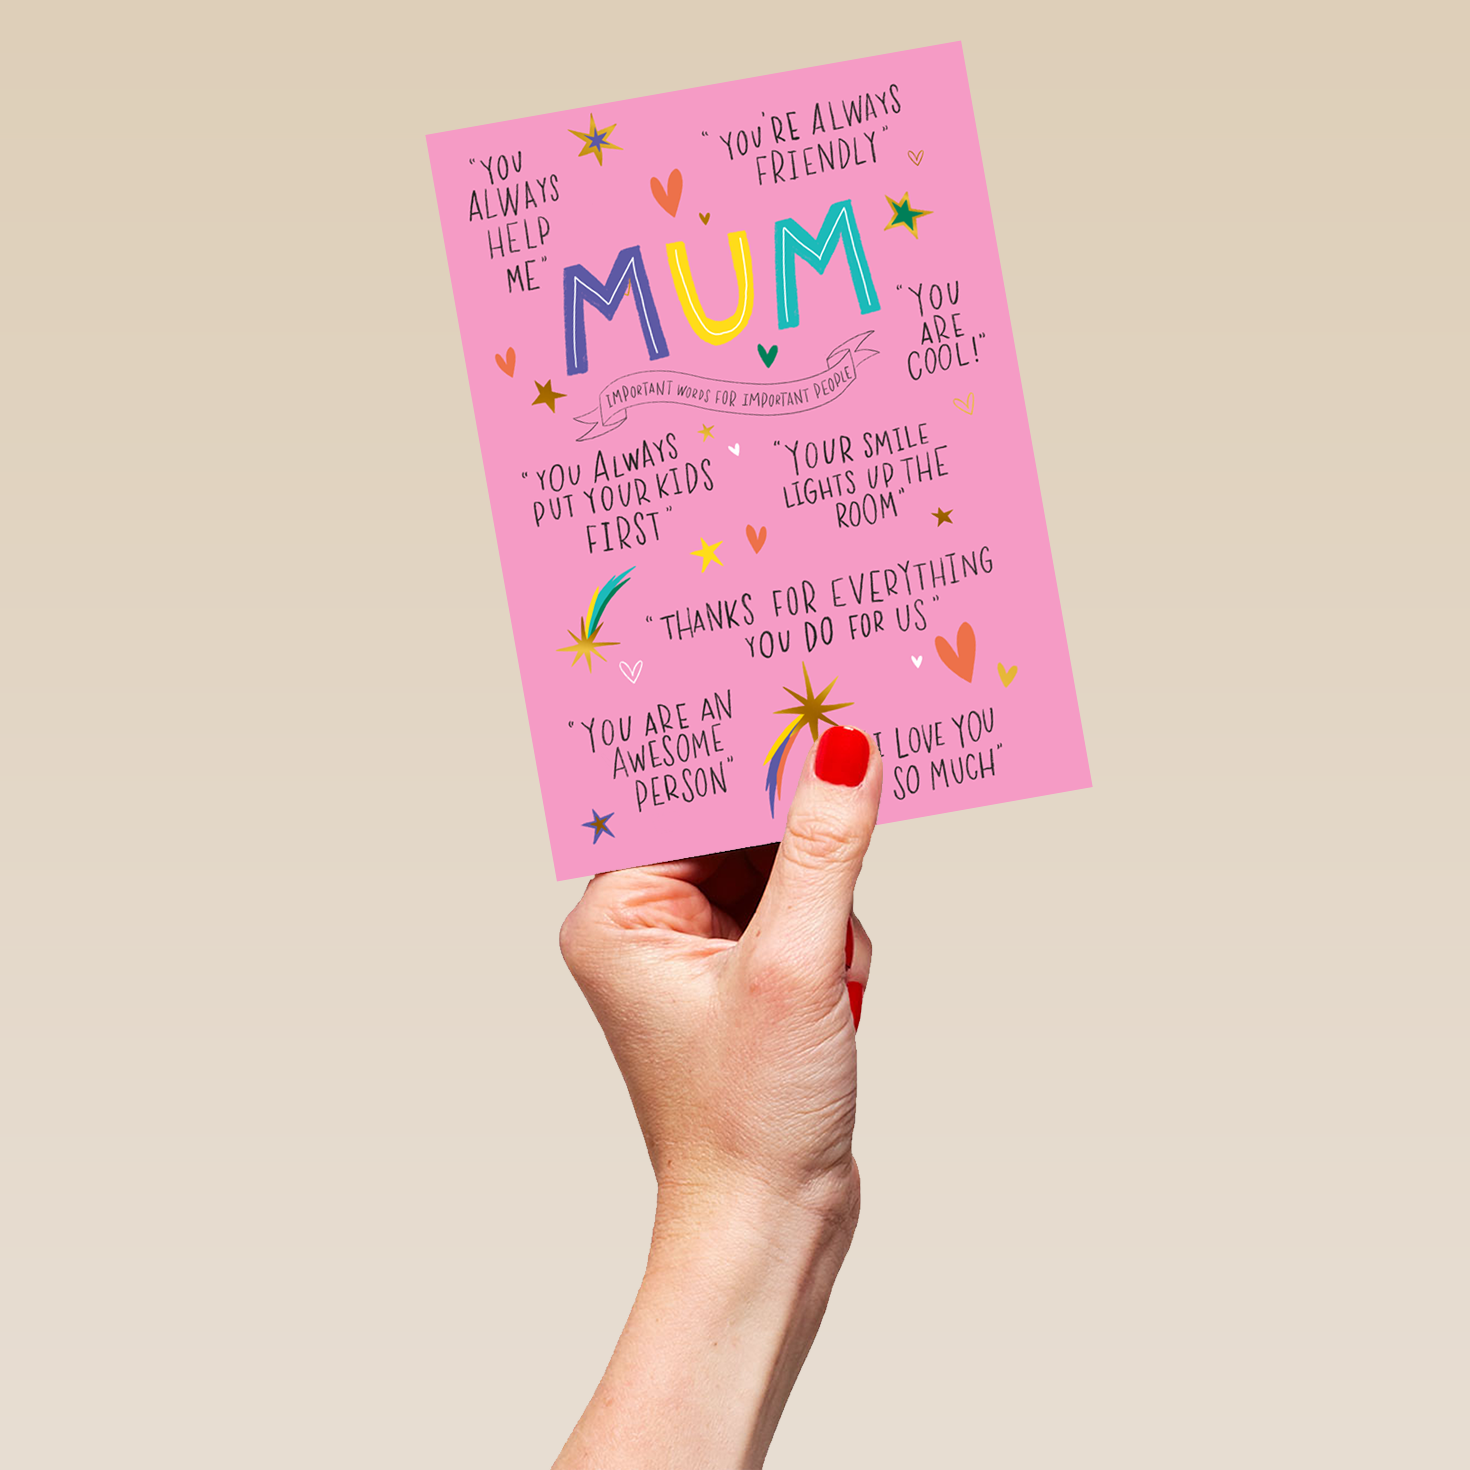 "YOU
ALWAYS
HELP
ME"
"YOU'RE ALWAYS
FRIENDLY"
MUM
"YOU
ARE
COOL!"
IMPORTANT WORDS FOR IMPORTANT PEOPLE
"YOU ALWAYS
PUT YOUR KIDS
FIRST"
"YOUR SMILE
LIGHTS UP THE
ROOM"
"THANKS FOR EVERYTHING
YOU DO FOR US"
"YOU ARE AN
AWESOME
PERSON"
I LOVE YOU
SO MUCH"